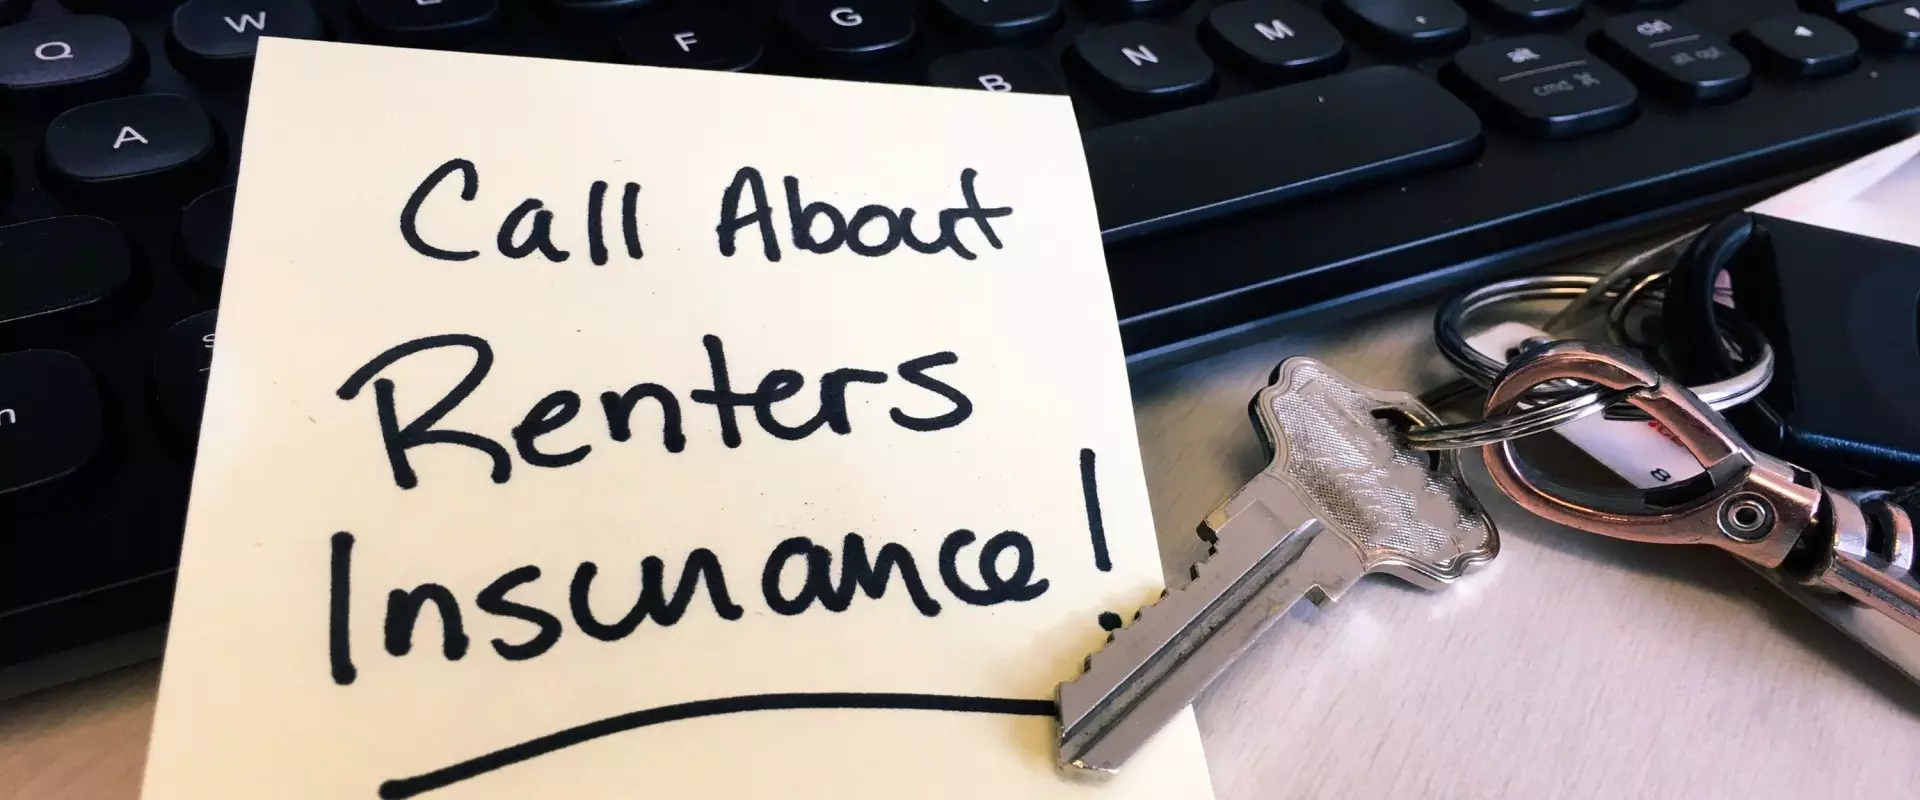 Q W E G
A F B N M , alt ctrl
cmd ⌘ alt opt
Call About
Renters
Insurance!
8